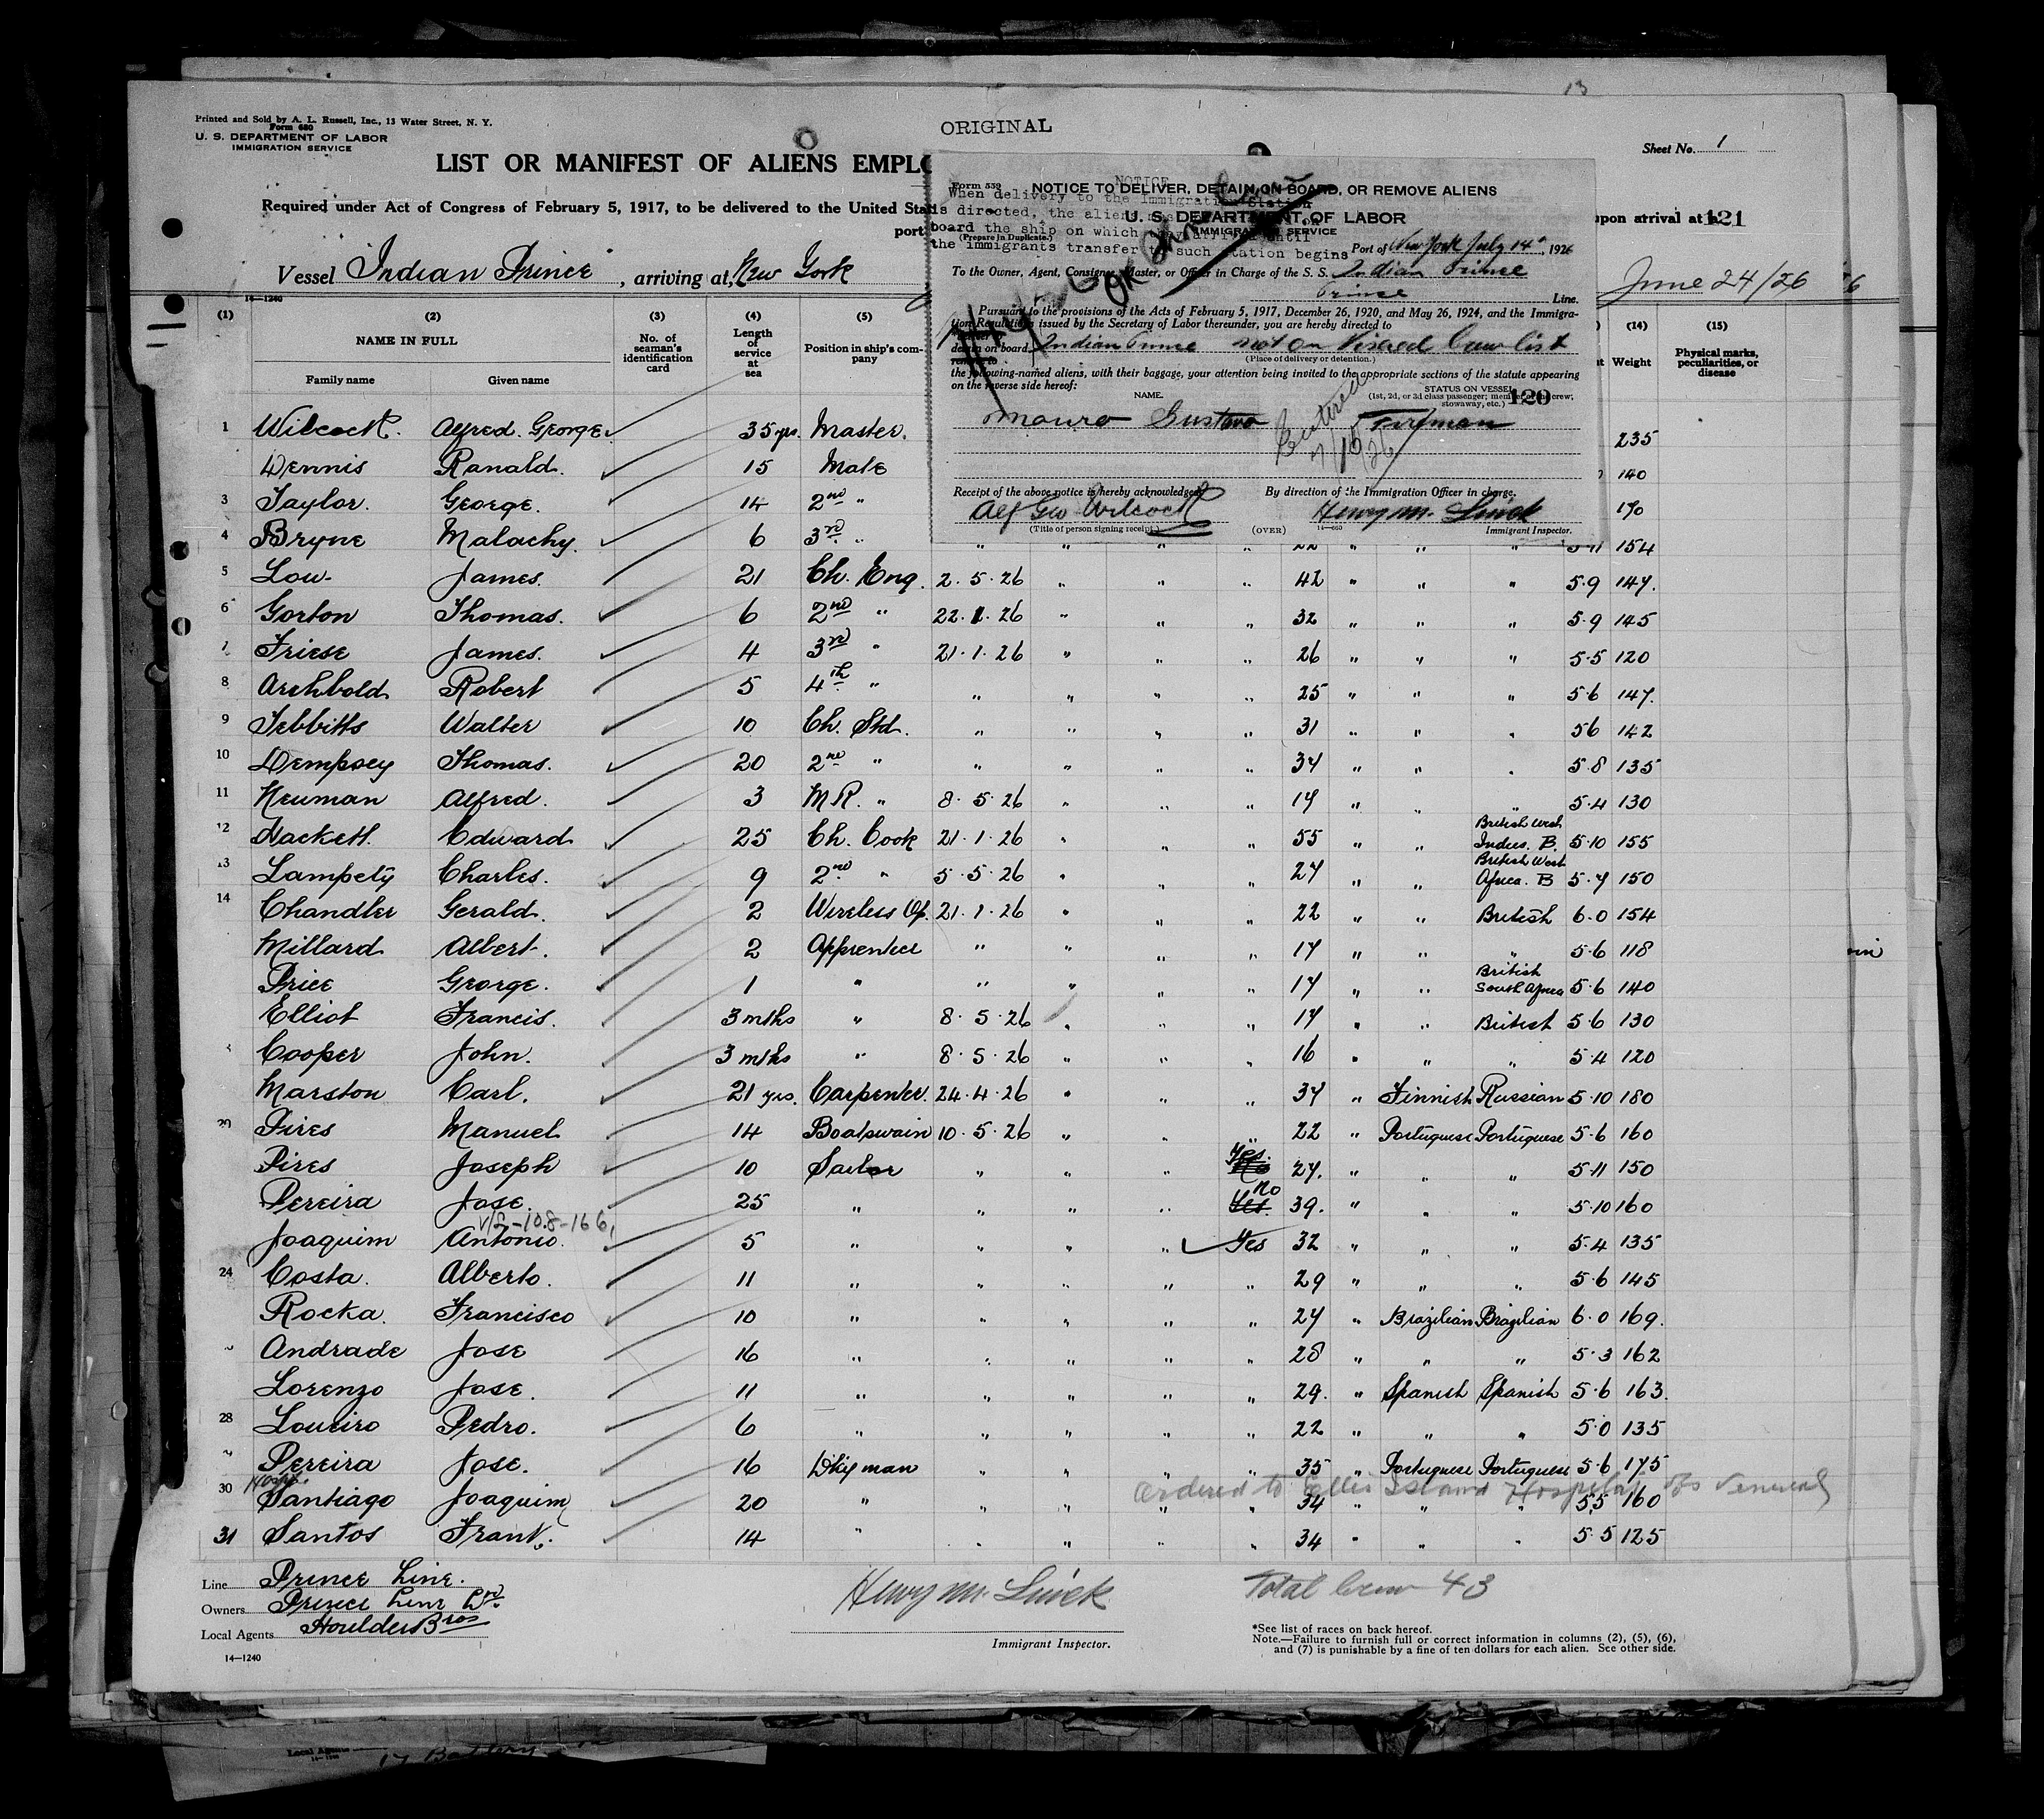 13
Printed and Sold by A. L. Russell, Inc., 13 Water Street, N. Y.
Form 680
U. S. DEPARTMENT OF LABOR
IMMIGRATION SERVICE
ORIGINAL
Sheet No. 1
LIST OR MANIFEST OF ALIENS EMPLO
Required under Act of Congress of February 5, 1917, to be delivered to the United Stat
upon arrival at
121
port
Vessel Indian Prince, arriving at, New York
June 24/26
NOTICE
When delivery to the Immigration Station
is directed, the alien
board the ship on which
until
the immigrants transfer to such station begins
Form 539
NOTICE TO DELIVER, DETAIN ON BOARD, OR REMOVE ALIENS
U. S. DEPARTMENT OF LABOR
IMMIGRATION SERVICE
(Prepare in Duplicate.)
Port of New York July 14, 1926
To the Owner, Agent, Consignee, Master, or Officer in Charge of the S. S. Indian Prince
Prince Line.
Pursuant to the provisions of the Acts of February 5, 1917, December 26, 1920, and May 26, 1924, and the Immigra-
tion Regulations issued by the Secretary of Labor thereunder, you are hereby directed to
detain on board Indian Prince not on Visaed Crew list
(Place of delivery or detention.)
the following-named aliens, with their baggage, your attention being invited to the appropriate sections of the statute appearing
on the reverse side hereof:
NAME.
STATUS ON VESSEL
(1st, 2d, or 3d class passenger; member of the crew; stowaway, etc.)
120
Mauro Gustavo Fireman
Entered 7/15/26
Receipt of the above notice is hereby acknowledged
By direction of the Immigration Officer in charge.
Alf Geo Wilcock
Henry M. Linck
(Title of person signing receipt.)
(OVER)
14—660
Immigrant Inspector.
14—1240
(1) (2) (3) (4) (5) (14) (15)
NAME IN FULL
Family name Given name
No. of seaman's identification card
Length of service at sea
Position in ship's company
Weight
Physical marks, peculiarities, or disease
1 Wilcock. Alfred. George 35 yrs. Master. 235
Dennis Ranald. 15 Mate 140
3 Taylor. George. 14 2nd " 190
4 Bryne Malachy. 6 3rd " " " " " 22 " " " 154
5 Low James. 21 Ch. Eng. 2.5.26 " " " 42 " " " 5.9 147.
6 Gorton Thomas. 6 2nd " 22.1.26 " " " 32 " " " 5.9 145
7 Friese James. 4 3rd " 21.1.26 " " " 26 " " " 5.5 120
8 Archbold Robert 5 4th " " " " " 25 " " " 5.6 147.
9 Tebbitts Walter 10 Ch. Std. " " " " 31 " " " 5 6 142
10 Dempsey Thomas. 20 2nd " " " " " 37 " " " 5.8 135
11 Neuman Alfred. 3 M.R. " 8.5.26 " " " 17 " " " 5.4 130
12 Hackett. Edward 25 Ch. Cook 21.1.26 " " " 55 " " British West Indies. B. 5.10 155
13 Lampety Charles. 9 2nd " 5.5.26 " " " 27 " " British West Africa. B 5.7 150
14 Chandler Gerald. 2 Wireless Op. 21.1.26 " " " 22 " " British 6.0 154
Millard Albert. 2 Apprentice " " " " 17 " " " 5.6 118
Price George. 1 " " " " " 17 " " British South Africa 5.6 140
Elliot Francis. 3 mths " 8.5.26 " " " 17 " " British 5.6 130
Cooper John. 3 mths " 8.5.26 " " " 16 " " " 5.4 120
Marston Carl. 21 yrs. Carpenter. 24.4.26 " " " 37 " Finnish Russian 5.10 180
20 Pires Manuel 14 Boatswain 10.5.26 " " " 22 " Portuguese Portuguese 5.6 160
Pires Joseph 10 Sailor " " " Yes. 27. " " " 5.11 150
Pereira Jose. 25 " " " " Yes. No 39. " " " 5.10 160
V/2-108-166,
Joaquim Antonio. 5 " " " " Yes 32 " " " 5.4 135
24 Costa. Alberto. 11 " " " " " 29 " " " 5.6 145
Rocka. Francisco 10 " " " " " 27 " Brazilian Brazilian 6.0 169.
Andrade Jose 16 " " " " " 28 " " " 5.3 162
Lorenzo Jose. 11 " " " " " 29. " Spanish Spanish 5.6 163.
28 Loureiro Pedro. 6 " " " " " 22 " " " 5.0 135
Pereira Jose. 16 Dkyman " " " " 35 " Portuguese Portuguese 5.6 175
Hosp. ordered to Ellis Island Hospital for Venereal
30 Santiago Joaquim 20 " " " " " 34 " " " 5.5 160
31 Santos Frank. 14 " " " " " 34 " " " 5.5 125
Line Prince Line.
Owners Prince Line Ld.
Local Agents Houlder Bros
14—1240
Henry M. Linck
Immigrant Inspector.
Total Crew 43
*See list of races on back hereof.
Note.—Failure to furnish full or correct information in columns (2), (5), (6),
and (7) is punishable by a fine of ten dollars for each alien. See other side.
Local Agents
17 Battery